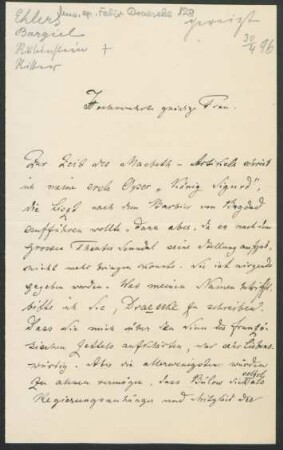 Ehlers
Bargiel
Ritter
Mus. ep. Felix Draeseke 128
gereist
30/4 96
Hochverehrte gnädige Frau.
Der Held des Macbeth-Artikels
in meine erste Oper "König Sigurd",
die Liszt nach dem Barbier von Bagdad
aufführen wollte, dann aber, da er nach dem
grossen Theater Skandal seine Stellung aufgab,
nicht mehr bringen konnte. Sie ist nirgends
gegeben worden. Was meinen Namen betrifft,
bitte ich Sie, Draeseke zu schreiben.
Dass Sie mich über den Sinn des französischen
Zettels aufklärten, war sehr liebenswürdig.
Aber die allerwenigsten würden
zu ahnen vermögen, dass Bülow
Regierungsanhänger und Mitglied der